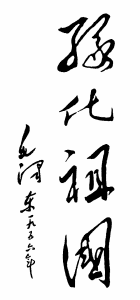 绿化祖國
毛泽东一九五六年